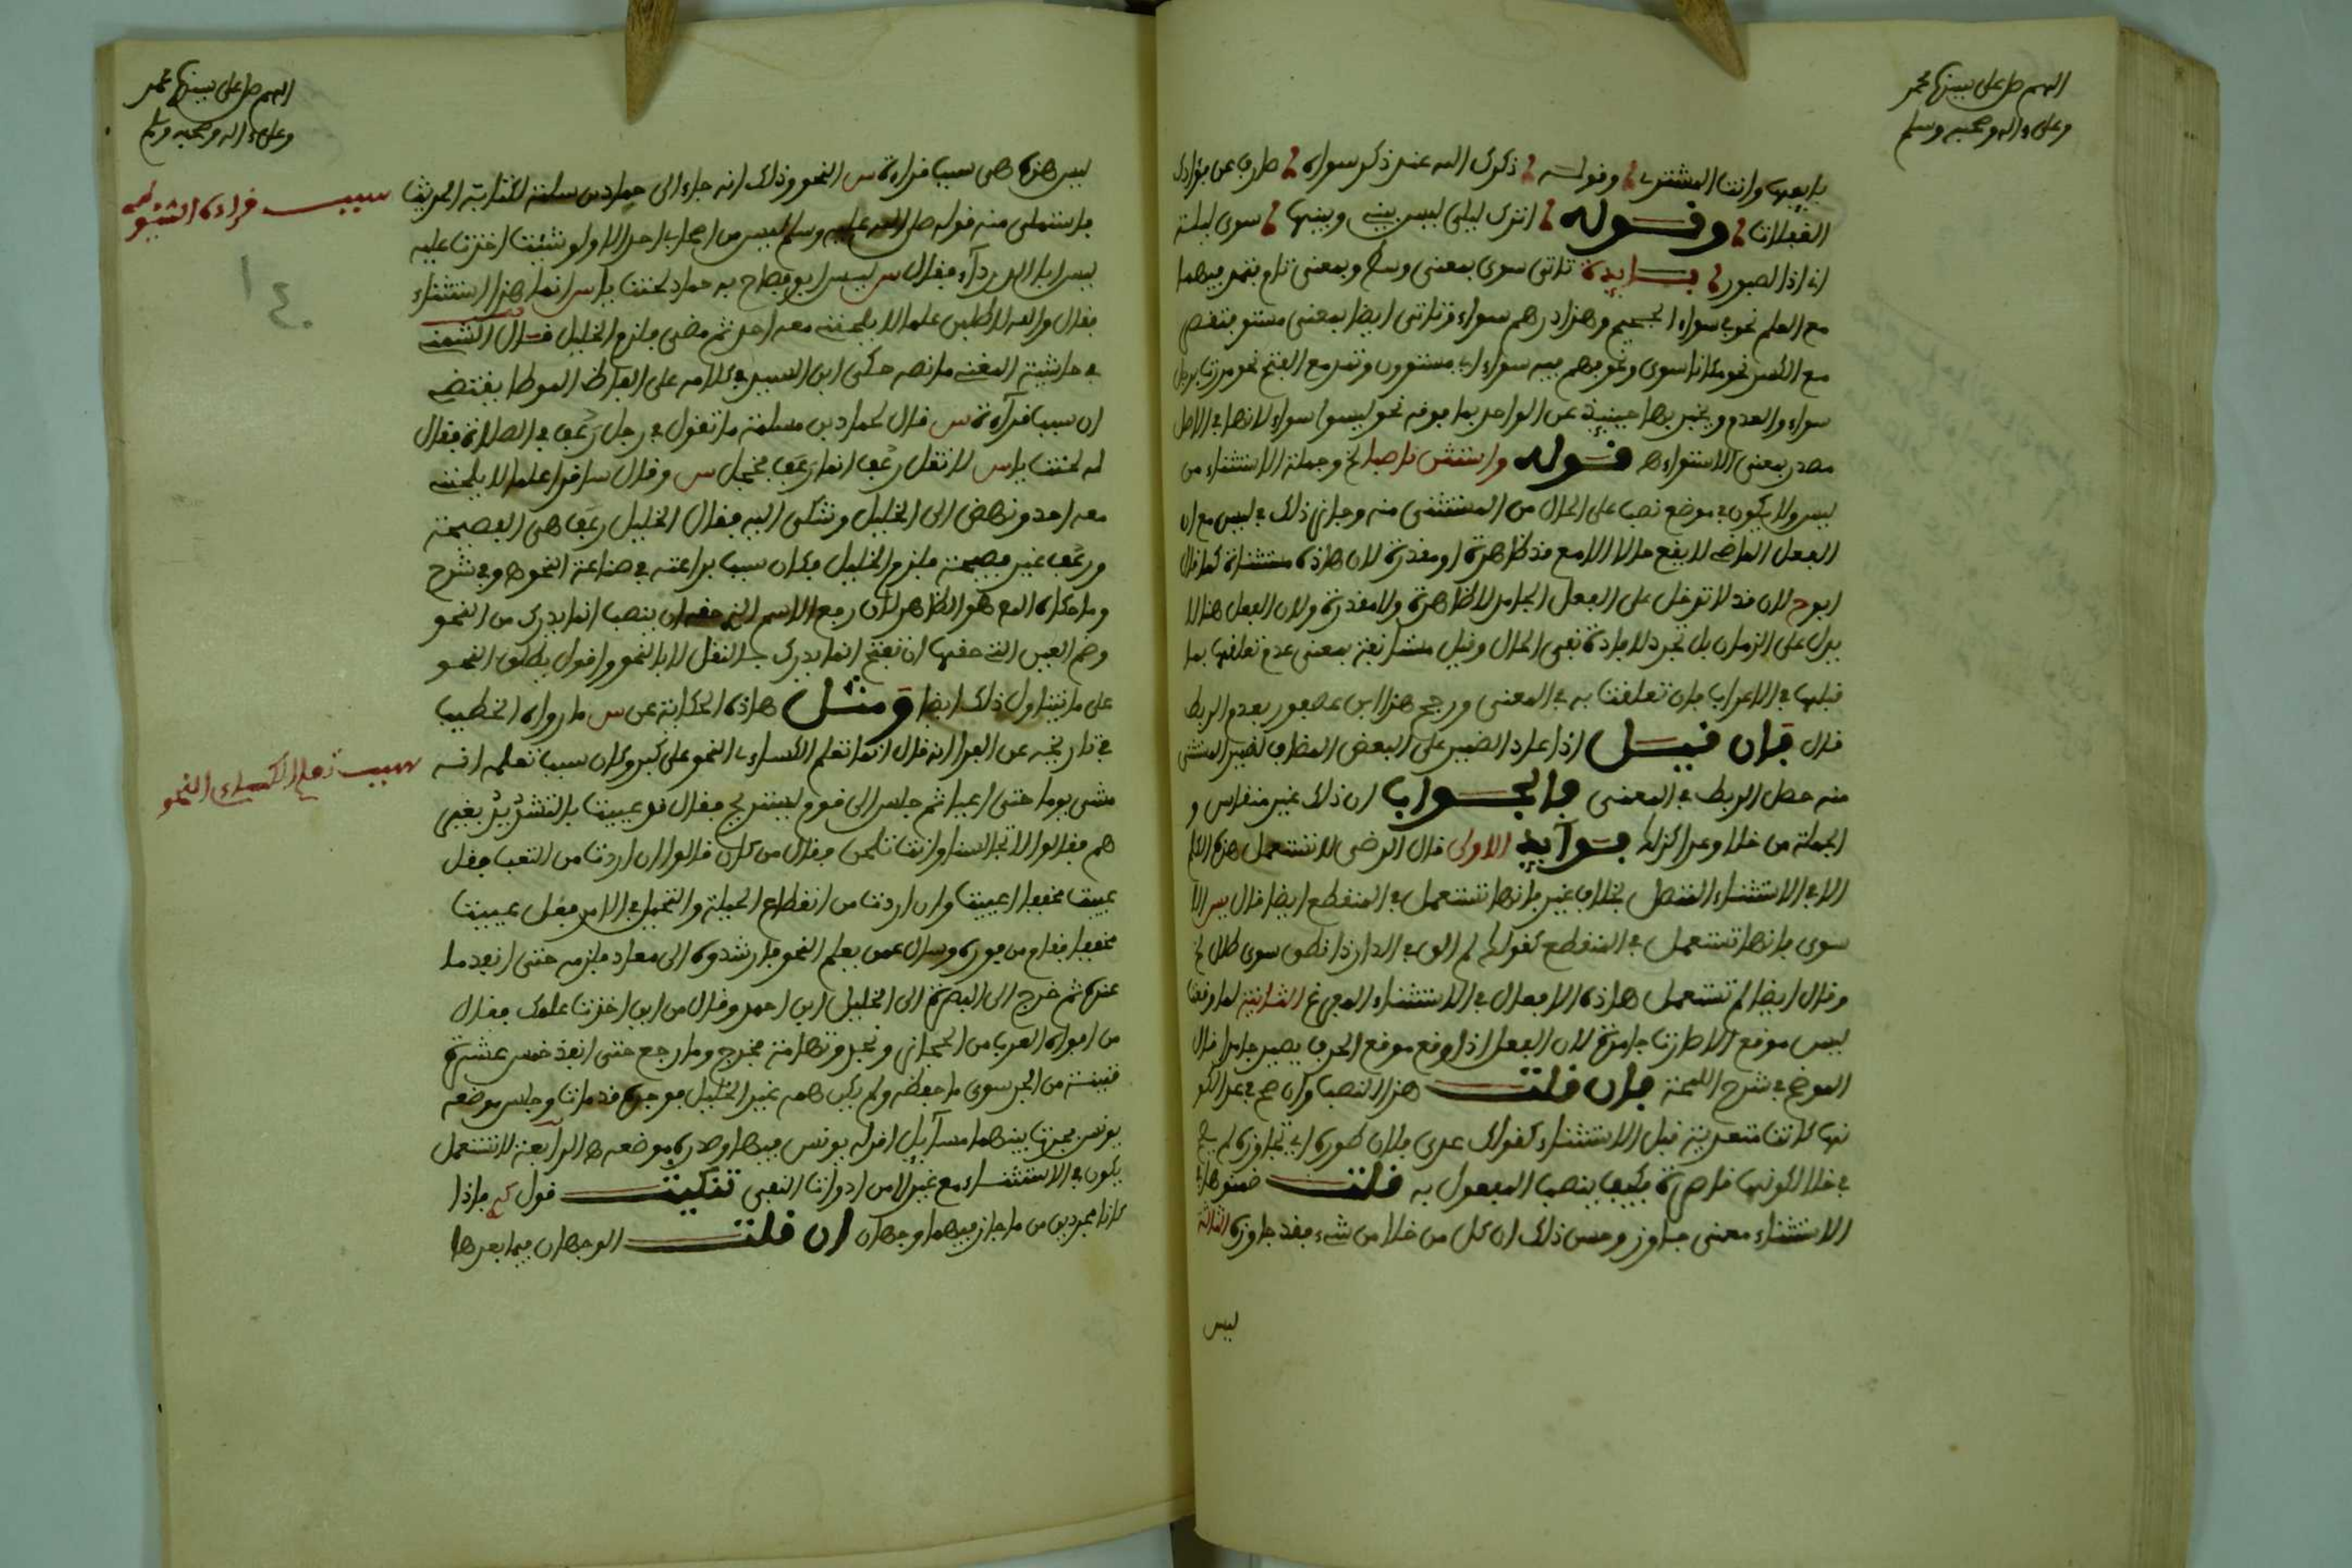 اللهم صل على سيدنا محمد
وعلى ءاله وصحبه وسلم
بايعها وانت المشتر وقوله ذكرك الله عند ذكر سواه صارف عن فؤادك
الغفلات وقوله اترك ليلى ليس بيني وبينها سوى ليلة
اني اذا لصبور فايدة تاتى سوى بمعنى وسط وبمعنى تام فتمد فيهما
مع الفتح نحو في سواء الجحيم وهذا درهم سواء وتاتى ايضا بمعنى مستو فتقصر
مع الكسر نحو مكانا سوى ونحو هم فيه سواء اي مستوون وتمد مع الفتح نحو مررت برجل
سواء والعدم ويخبر بها حينئذ عن الواحد بما فوقه نحو ليسوا سواء لانها في الاصل
مصدر بمعنى الاستواء ه قوله واستثن ناصبا الخ وجملة الاستثناء من
ليس ولا يكون في موضع نصب على الحال من المستثنى منه وجاز ذلك في ليس مع ان
الفعل الماضي لا يقع حالا الا مع قد ظاهرة او مقدرة لان هاذه مستثناة كما قال
ابوح لان قد لا تدخل على الفعل الجامد لا ظاهرة ولا مقدرة ولان الفعل هنا لا
يدل على الزمان بل تجرد لافادة نفي الحال وقيل مستانفة بمعنى عدم تعلقها بما
قبلها في الاعراب فان تعلقت به في المعنى ورجح هذا ابن عصفور بعدم الربط
قال فان قيل اذا عاد الضمير على البعض المضاف لضمير المستثنى
منه حصل الربط في المعنى فالجواب ان ذلك غير منقاس و
الجملة من خلا وعدا كذلك فوايد الاولى قال الرضى لا تستعمل هذه الكلم
الا في الاستثناء المتصل بخلاف غير فانها تستعمل في المنقطع ايضا قال س الا
سوى فانها تستعمل في المنقطع كقولك لم الق في الدار ذا نطق سوى طلل الخ
وقال ايضا لم تستعمل هاذه الافعال في الاستثناء المفرغ الثانية لما وقعت
ليس موقع الا صارت جامدة لان الفعل اذا وقع موقع الحرف يصير جامدا قال
الموضح في شرح اللمحة فان قلت هذا النصب وان صح في عدا لكو
نها كانت متعدية قبل الاستثناء كقولك عدى فلان طوره اي تجاوزه لم يصح
في خلا لكونها قاصرة فكيف ينصب المفعول به قلت ضمنوها في
الاستثناء معنى جاوز وحسن ذلك ان كل من خلا من شيء فقد جاوزه الثالثة
ليس
اللهم صل على سيدنا محمد
وعلى ءاله وصحبه وسلم
ليس هذه هي سبب قراءة س النحو وذلك انه جاء الى حماد بن سلمة لكتابة الحديث
فاستملى منه قوله صلى الله عليه وسلم ليس من اصحابي احد الا ولو شئت اخذت عليه
ليس ابا الدرداء فقال س ليس ابو فصاح به حماد لحنت يا س انما هذا استثناء
فقال والله لاطلبن علما لا يلحنني معه احد ثم مضى فلزم الخليل قال الشمني
في حاشية المغني ما نصه حكى ابن السيد في كلامه على الفاظ الموطا يقتضي
ان سبب قرآءة س قال لحماد بن مسلمة ما تقول في رجل رعف في الصلاة فقال
له لحنت يا س لا تقل رعف انما رعف فخجل س وقال ساقرا علما لا يلحنني
معه احد ونهض الى الخليل وتشكى اليه فقال الخليل رعف هى الفصيحة
ورعف غير فصيحة فلزم الخليل فكان سبب براعته في صناعة النحو ه وفي شرح
وما حكاه المع هو الظاهر لان رفع الاسم الذي حقه ان ينصب انما يدرك من النحو
وضم العين التي حقها ان تفتح انما يدرك بالنقل لا بالنحو واقول يطلق النحو
على ما يتناول ذلك ايضا ومثل هاذه الحكاية عن س ما رواه الخطيب
في تاريخه عن الفرا انه قال انما تعلم الكساءي النحو على كبر وكان سبب تعلمه انه
مشى يوما حتى اعيا ثم جلس الى قوم ليستريح فقال قد عييت بالتشديد بغير
همز فقالوا لا تجالسنا وانت تلحن فقال من كان قالوا ان اردت من التعب فقل
عييت مخففا اعييت وان اردت من انقطاع الحيلة والتحير في الامر فقل عييت
مخففا فقام من فوره وسال عمن يعلم النحو فارشدوه الى معاد فلزمه حتى انفد ما
عنده ثم خرج الى البصرة الى الخليل ابن احمد وقال من اين اخذت علمك فقال
من افواه العرب من الحجاز ونجد وتهامة فخرج وما رجع حتى انفد خمس عشرة
قنينة من الحبر سوى ما حفظه ولم يكن همه غير الخليل فوجده قد مات وجلس موضعه
يونس فجرت بينهما مسآيل اقر له يونس فيها وصدره موضعه ه الرابعة لا تستعمل
يكون في الاستثناء مع غير لا من ادوات النفي تنكيت قول كم فاذا
كانا مجردين من ما جاز فيهما وجهان ان قلت الوجهان فيما بعدها
سبب قراءة الشيخ
سبب تعلم الكساءي النحو